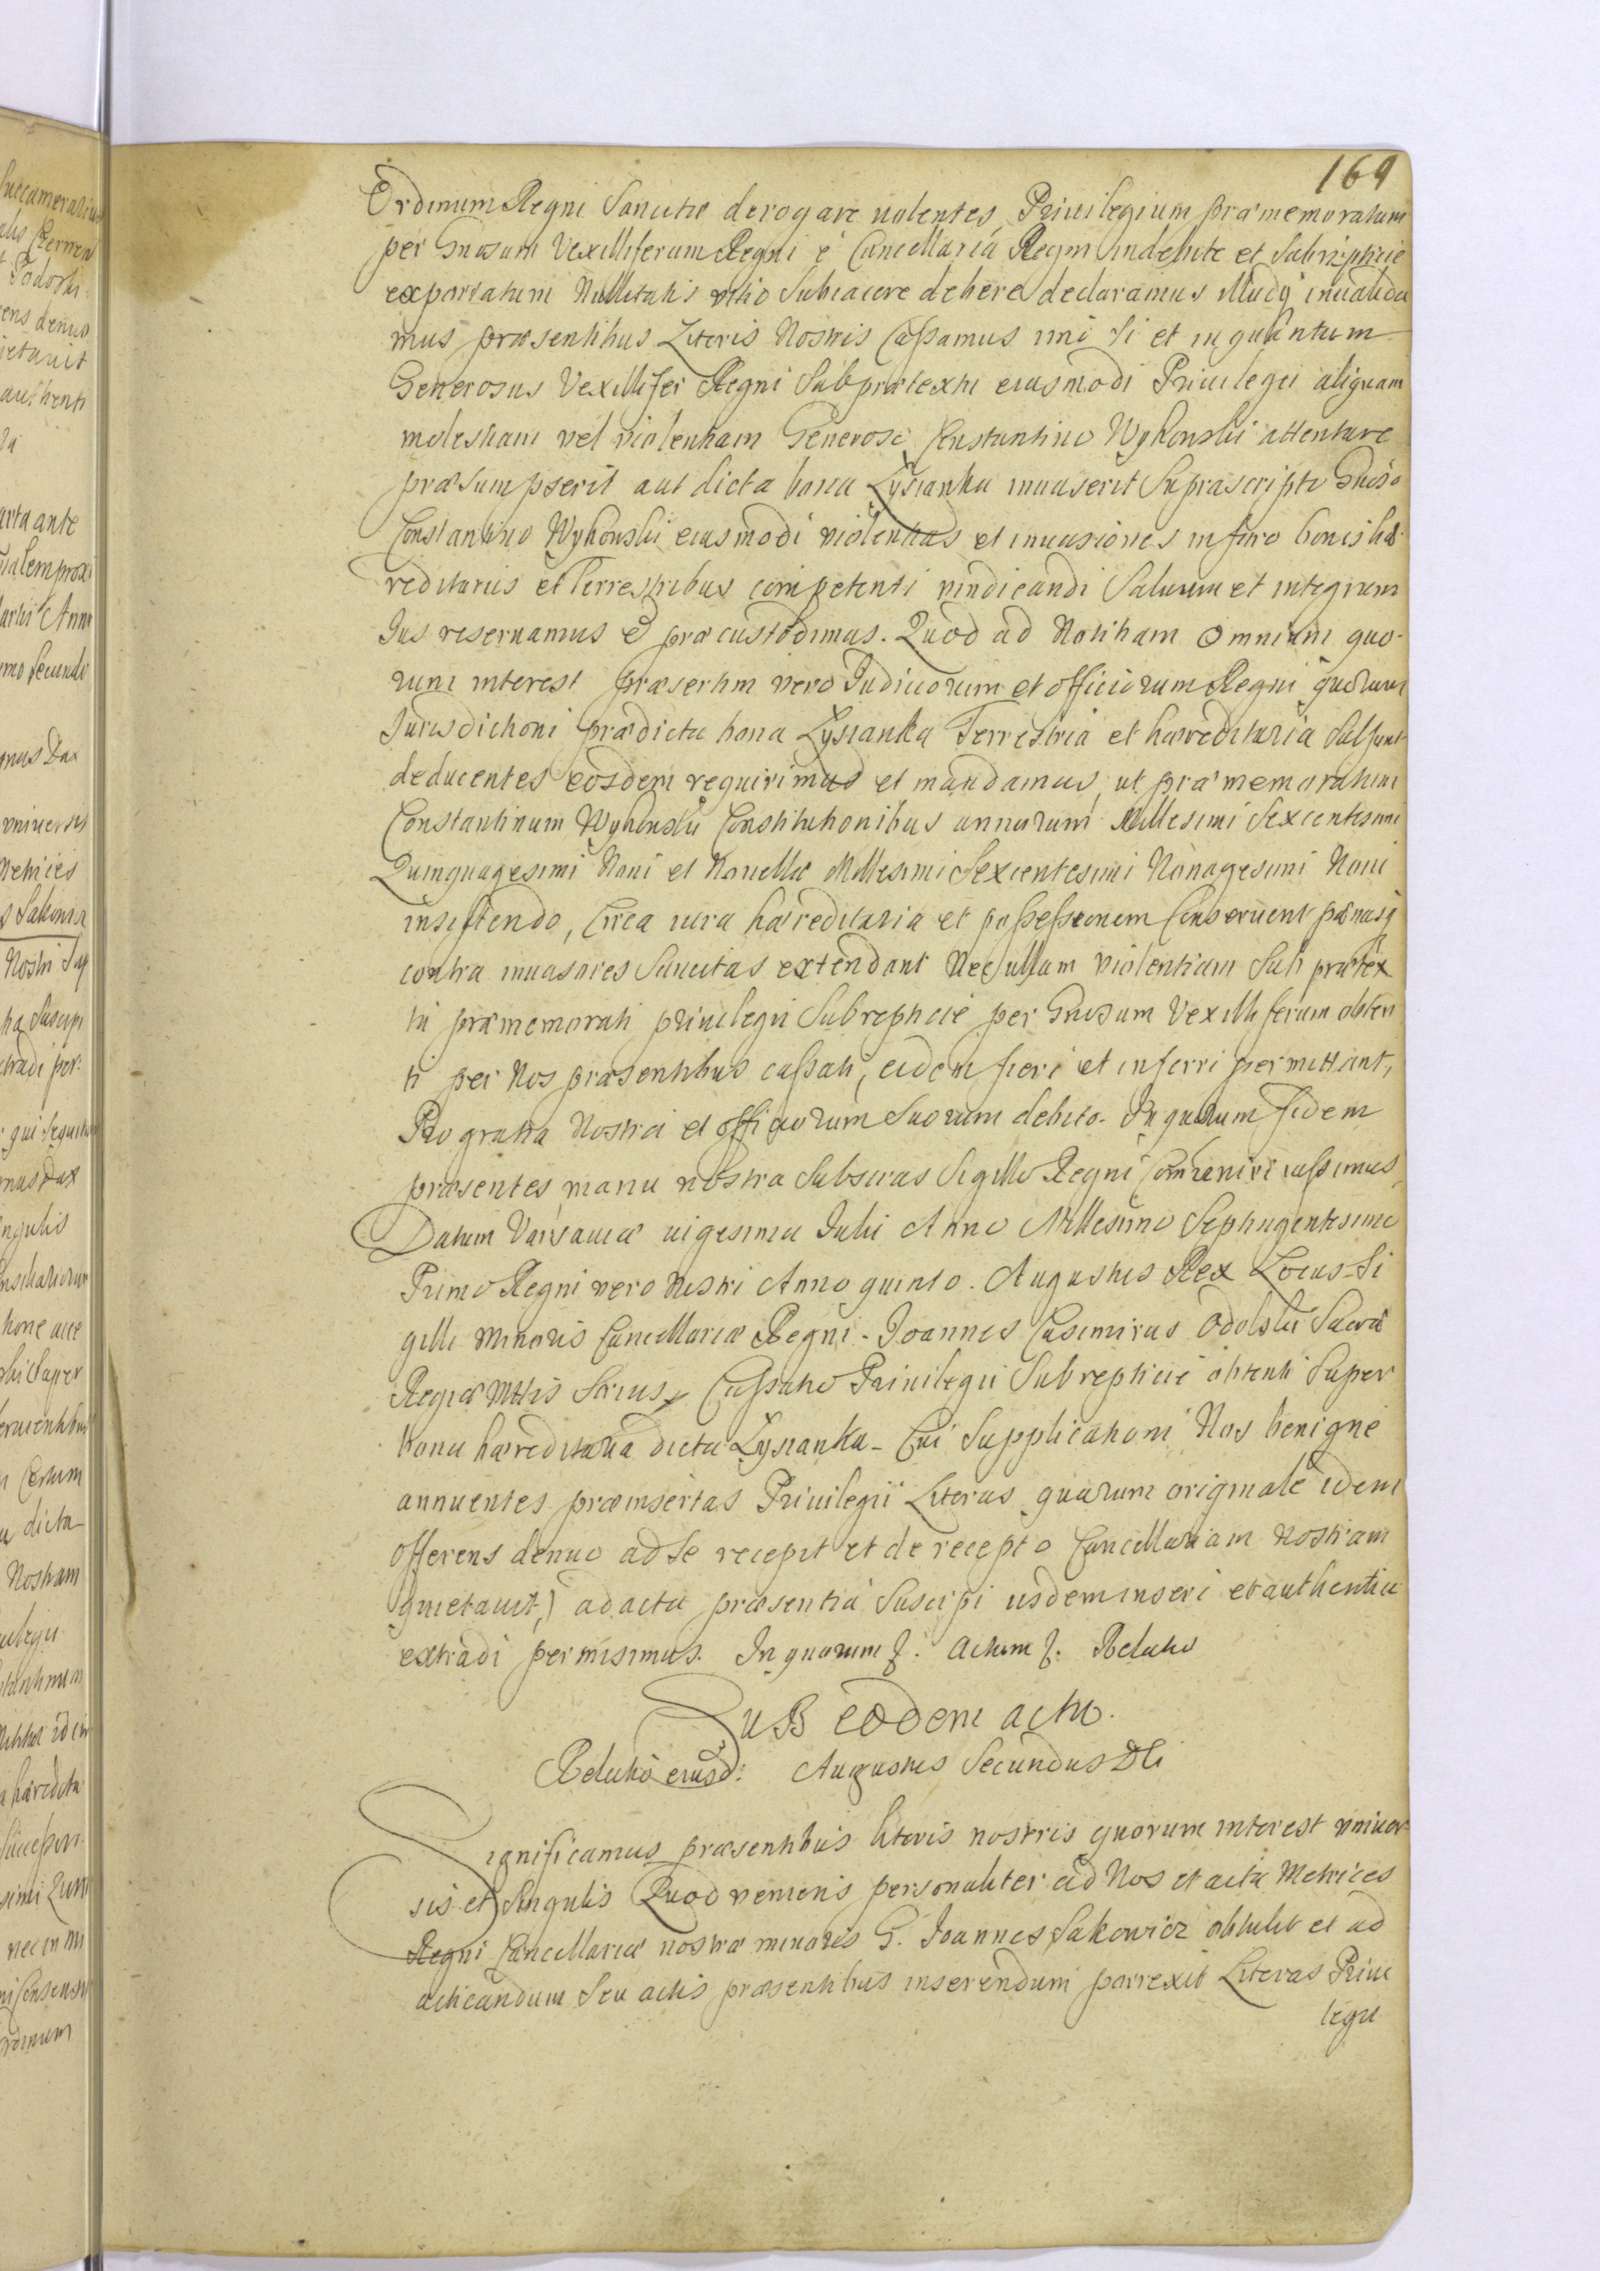 169
Ordinum Regni Sancitis derogare nolentes, Privilegium præmemoratum
per Gnosum Vexilliferum Regni è Cancellaria Regni indebite et Subreptitie
exportatum Nullitatis vitio Subiacere debere declaramus illudq invalida
mus præsentibus Literis Nostris Cassamus imò Si et in quantum
Generosus Vexillifer Regni Sub prætextu eiusmodi Privilegii aliquam
molestiam vel violentiam Generoso Constantino Wyhowski attentare
præsumpserit aut dicta bona Lysianka invaserit Suprascripto Gnoso
Constantino Wyhowski eiusmodi violentias et invasiones in foro bonis hæ-
reditariis et Terrestribus competenti vindicandi Salvum et integrum
Jus reservamus & præcustodimus. Quod ad Notitiam Omnium quo-
rum interest præsertim vero Judiciorum et officiorum Regni quorum
Jurisdictioni prædicta bona Lysianka Terrestria et hæreditaria Subsunt
deducentes eosdem requirimus et mandamus, ut præmemoratum
Constantinum Wyhowski Constitutionibus annorum Millesimi Sexcentesimi
Quinquagesimi Noni et Novellæ Millesimi Sexcentesimi Nonagesimi Noni
insistendo, Circa iura hæreditaria et possessionem Conservent pænasq
contra invasores Sancitas extendant Nec ullam violentiam Sub prætex
tu præmemorati privilegii Subreptitie per Gnosum Vexilliferum obten
ti per Nos præsentibus cassati, eidem fieri et inferri permittant,
Pro gratia Nostra et officiorum Suorum debito. In quorum fidem
præsentes, manu nostra Subscras Sigillo Regni Comuniri iussimus,
Datum Varsaviæ vigesima Julii Anno Millesimo Septingentesimo
Primo Regni vero Nostri Anno quinto. Augustus Rex Locus Si
gilli Minoris Cancellariæ Regni. Joannes Casimirus Odolski Sacræ
Regiæ Mttis Scrius, Cassatio Privilegii Subreptitie obtenti Super
bona hæreditaria dicta Lysianka. Cui Supplicationi Nos benigne
annuentes præinsertas Privilegii Literas, quarum originale idem
offerens denuo ad Se recepit et de recepto Cancellariam nostram
quietavit,) ad acta præsentia Suscipi iisdem inseri et authentice
extradi permisimus. In quorum f. Actum f. Relatio
Sub eodem actu.
Relatio eiusd: Augustus Secundus D G
Significamus præsentibus literis nostris quorum interest univer-
sis et Singulis Quod veniens personaliter ad Nos et acta Metrices
Regni Cancellariæ nostræ minoris G. Joannes Sakowicz obtulit et ad
acticandum Seu actis præsentibus inserendum porrexit Literas Privi
legii